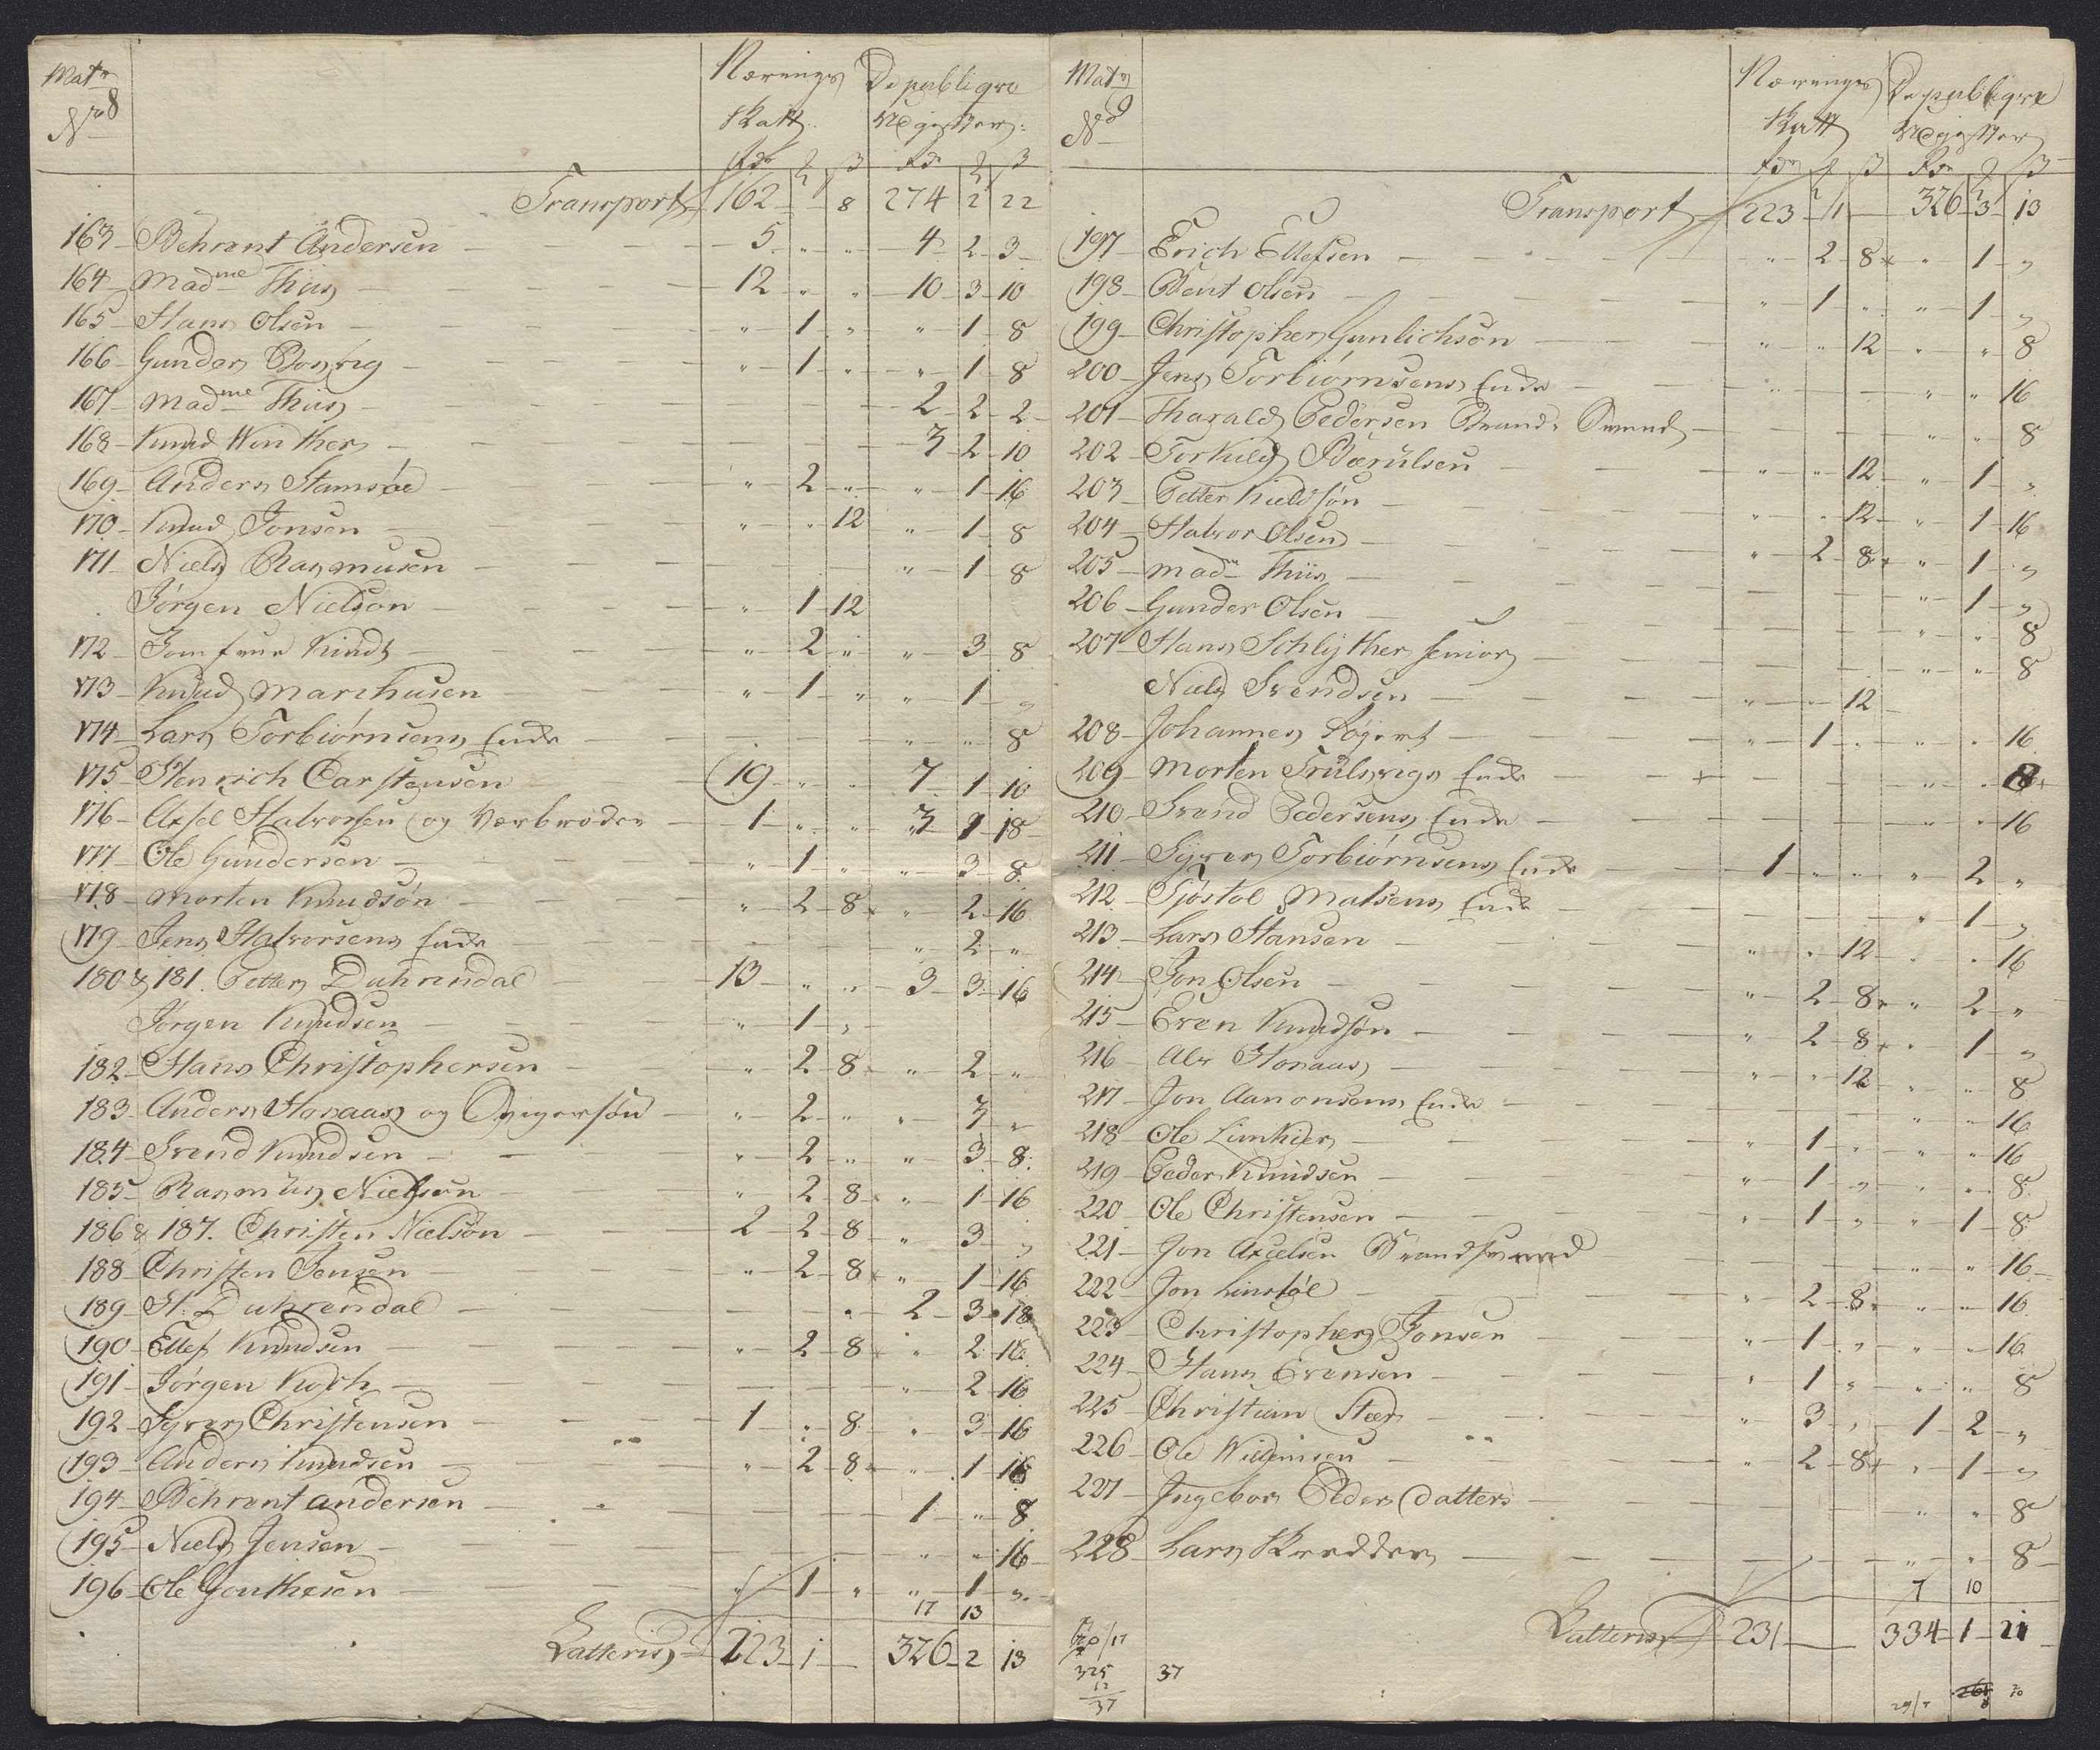 Matr No 8 Nærings Skatt De publiqve Udgifter
Rdr ß Rdr ß
Transport 162 - " 8 274 2 22
163 Behrent Andersen 5 " " 4 2 3
164 Madme Thiis 12 " " 10 3 10
165 Hans Olsen " 1 " " 1 8
166 Gunder " 1 " " 1 8
167 Madme Thiis 2 2 2
168 Knud Winther 3 2 10
169 Anders Stamsøe " 2 " " 1 16
170 Knud Jonsen " " 12 " 1 8
171 Niels Rasmusen " 1 8
Jørgen Nielsøn " 1 12
172 Jomfrue Kindt " 2 " " 3 8
173 Knud Marchusen " 1 " " 1 "
174 Lars Torbiørnsens Enke " " 8
175 Henrich Carstensen 19 " " 7 1 10
176 Axsel Halvorsen og Værbroder 1 " " 3 18
177 Ole Gundersen " 1 " " 3 8
178 Morten Knudsøn " 2 8 " 2 16
179 Jens Halvorsens Enke " 2 "
180 & 181. Petter Duhrendal 13 " " 3 3 16
Jørgen Knudsen " 1 "
182 Hans Christophersen " 2 8 " 2 "
183 Anders Honaas og " 2 " " 3 "
184 Svend Knudsen " 2 " " 3 8
185 Rasmus Nielsøn " 2 8 " 1 16
186 & 187. Christen Nielsøn 2 2 8 " 3 "
188 Christen Jensen " 2 8 " 1 16
189 H. Duhrendal " 2 3 18
190 Ellef Knudsen " 2 8 " 2 16
191 Jørgen Koch " 2 16
192 Syver Christensen 1 " 8 " 3 16
193 Anders Knudsen " 2 8 " 1 16
194 Behrent Andersen 1 " 8
195 Niels Jensen " " 16
196 Ole Gonthesen " 1 " " 1 "
17 13
Latteris 223 1 - 326 2 13
Matr No Nærings Skatt De publiqve Udgifter
Rdr ß Rdr ß
Transport 223 1 - 326 3 13
197 Erich Ellefsen " 2 8 " 1 "
198 Bent Olsen " 1 " " 1 "
199 Christopher Gunlichsøn " " 12 " " 8
200 Jens Torbiørnsens Enke " " 16
201 Tharald Pedersen Brand Svend " " 8
202 Torkild Bærulsen " " 12 " 1 "
203 Petter Kieldsøn " " 12 " 1 16
204 Halvor Olsen " 2 8 " 1 "
205 Made Thiis " 1 "
206 Gunder Olsen " " 8
207 Hans Schlyther senior " " 8
Niels Svendsen " " 12
208 Johannes " 1 " " " 16
209 Morten Enke " " 8
210 Svend Pedersens Enke " " 16
211 Syver Torbiørnsens Enke 1 " " " 2 "
212 Tjøstol Matsens Enke " 1 "
213 Lars Hansen " " 12 " " 16
214 Jon Olsen " 2 8 " 2 "
215 Even Knudsøn " 2 8 " 1 "
216 Alv Honaas " " 12 " " 8
217 Jon Aanonsens Enke " " 16
218 Ole Limkier " 1 " " " 16
219 Peder Knudsen " 1 " " " 8
220 Ole Christensen " 1 " " 1 8
221 Jon Axselsen Brandsvend " " 16
222 Jon Linstøl " 2 8 " " 16
223 Christopher Jonsen " 1 " " " 16
224 Hans Evensen " 1 " " " 8
225 Christian Stær " 3 " 1 2 "
226 Ole " 2 8 " 1 "
227 Ingebor Peders Datter " " 8
228 Lars Skredder " " 8
7 10
Latteris 231 - - 334 1 21
325 37
12
37